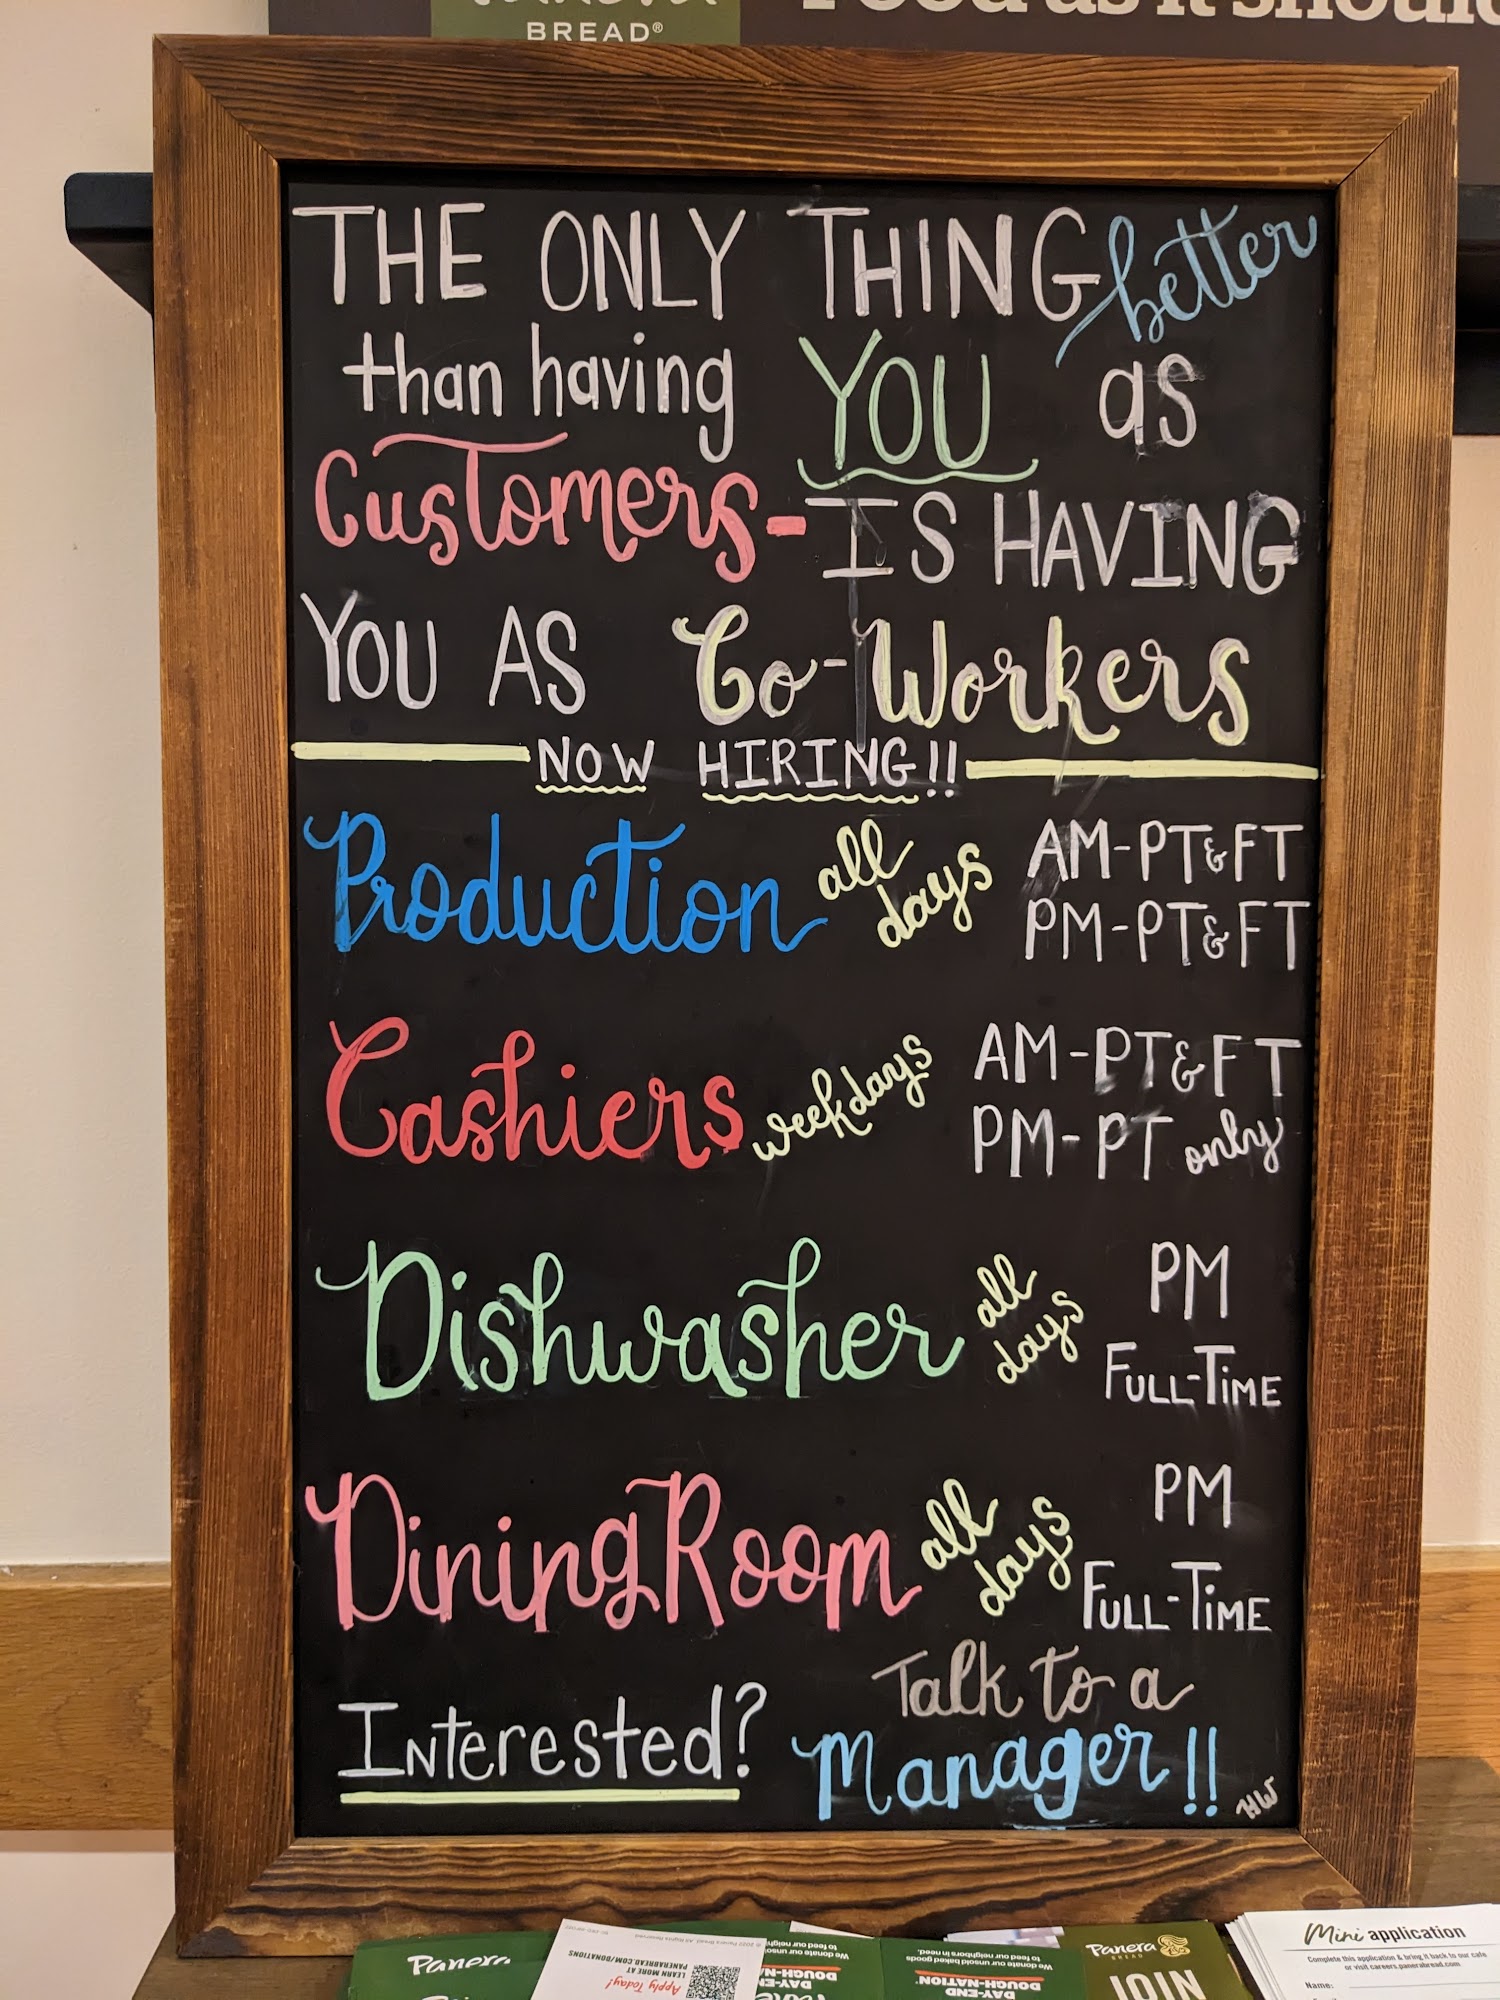 BREAD®
THE ONLY THING better
than having YOU as
Customers - IS HAVING
YOU AS Co-Workers
NOW HIRING!!
Production all days AM-PT&FT
PM-PT&FT
Cashiers weekdays AM-PT&FT
PM-PT only
Dishwasher all days PM
FULL-TIME
Dining Room all days PM
FULL-TIME
Interested? Talk to a
Manager!!
HW
Panera
© 2022 Panera Bread. All Rights Reserved.
Apply Today!
LEARN MORE AT
PANERABREAD.COM/DONATIONS
DAY-END
DOUGH-NATION
We donate our unsold baked goods
to feed our neighbors in need.
Panera
BREAD
JOIN
Mini application
Complete this application & bring it back to our cafe
or visit careers.panerabread.com.
Name: